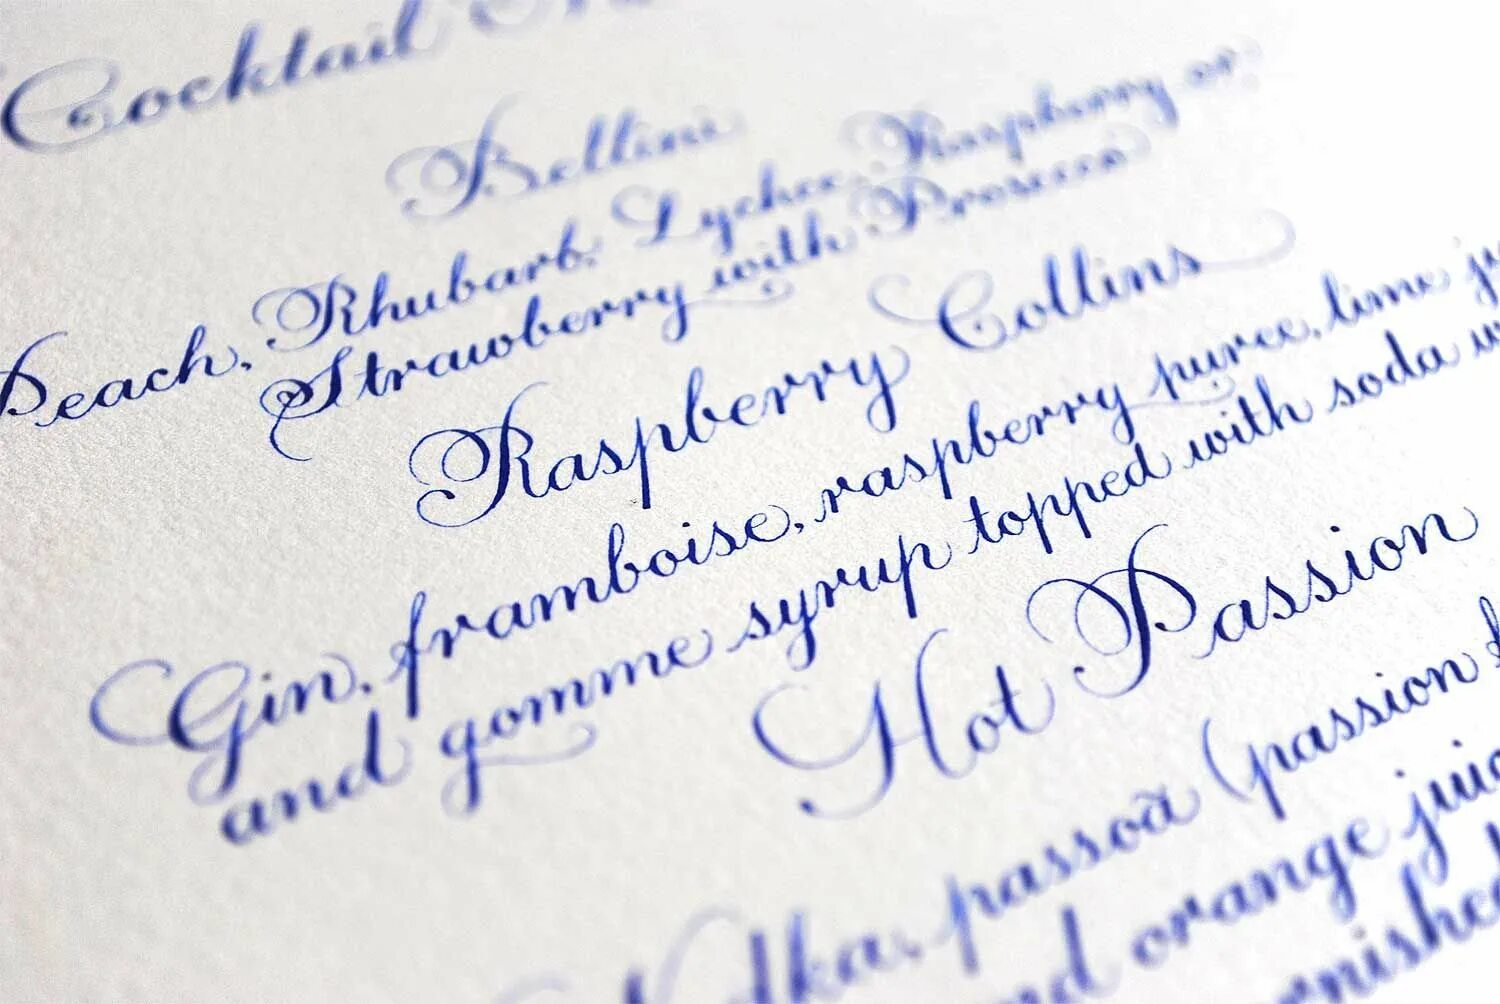 Cocktail
Bellini
Peach, Rhubarb, Lychee, Raspberry or
Strawberry with Prosecco
Raspberry Collins
Gin, framboise, raspberry puree, lime
and gomme syrup topped with soda
Hot Passion
passoã (passion
orange